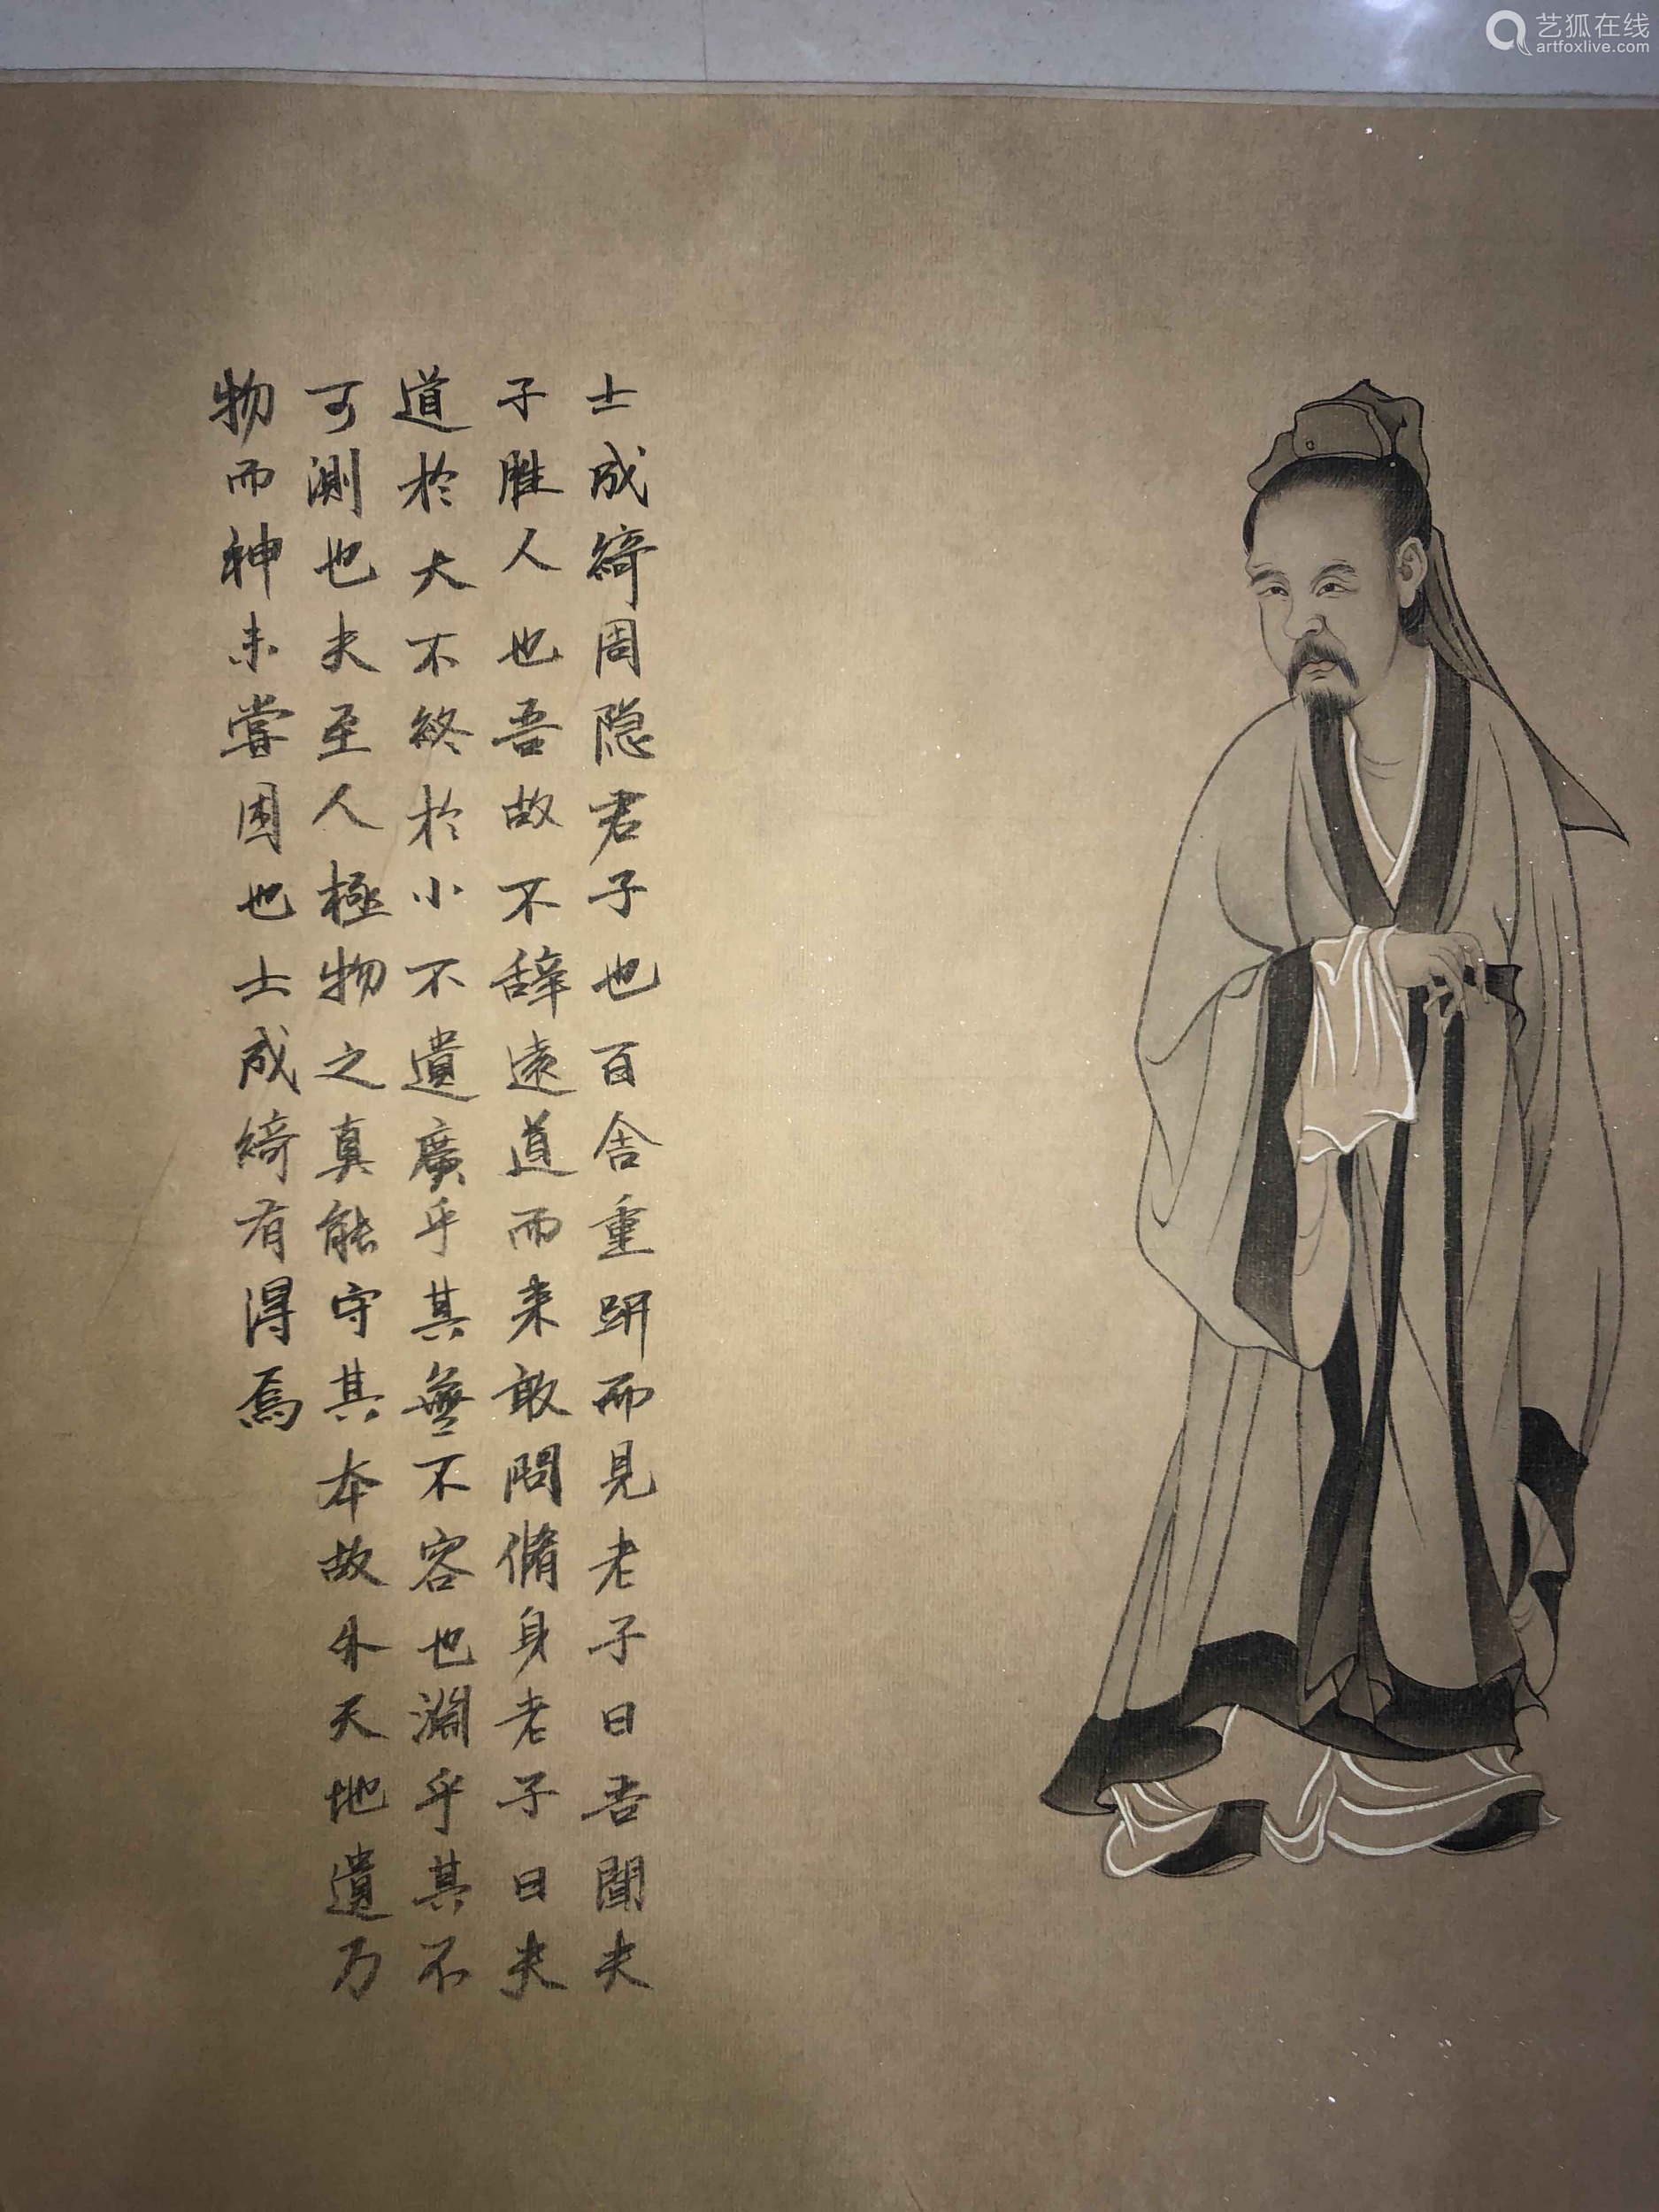 士成綺周隐君子也百舍重趼而見老子曰吾聞夫
子勝人也吾故不辞遠道而来敢問脩身老子曰夫
道於大不終於小不遺廣乎其無不容也淵乎其不
可測也夫至人極物之真能守其本故外天地遺万
物而神未嘗困也士成綺有得焉
艺狐在线
artfoxlive.com